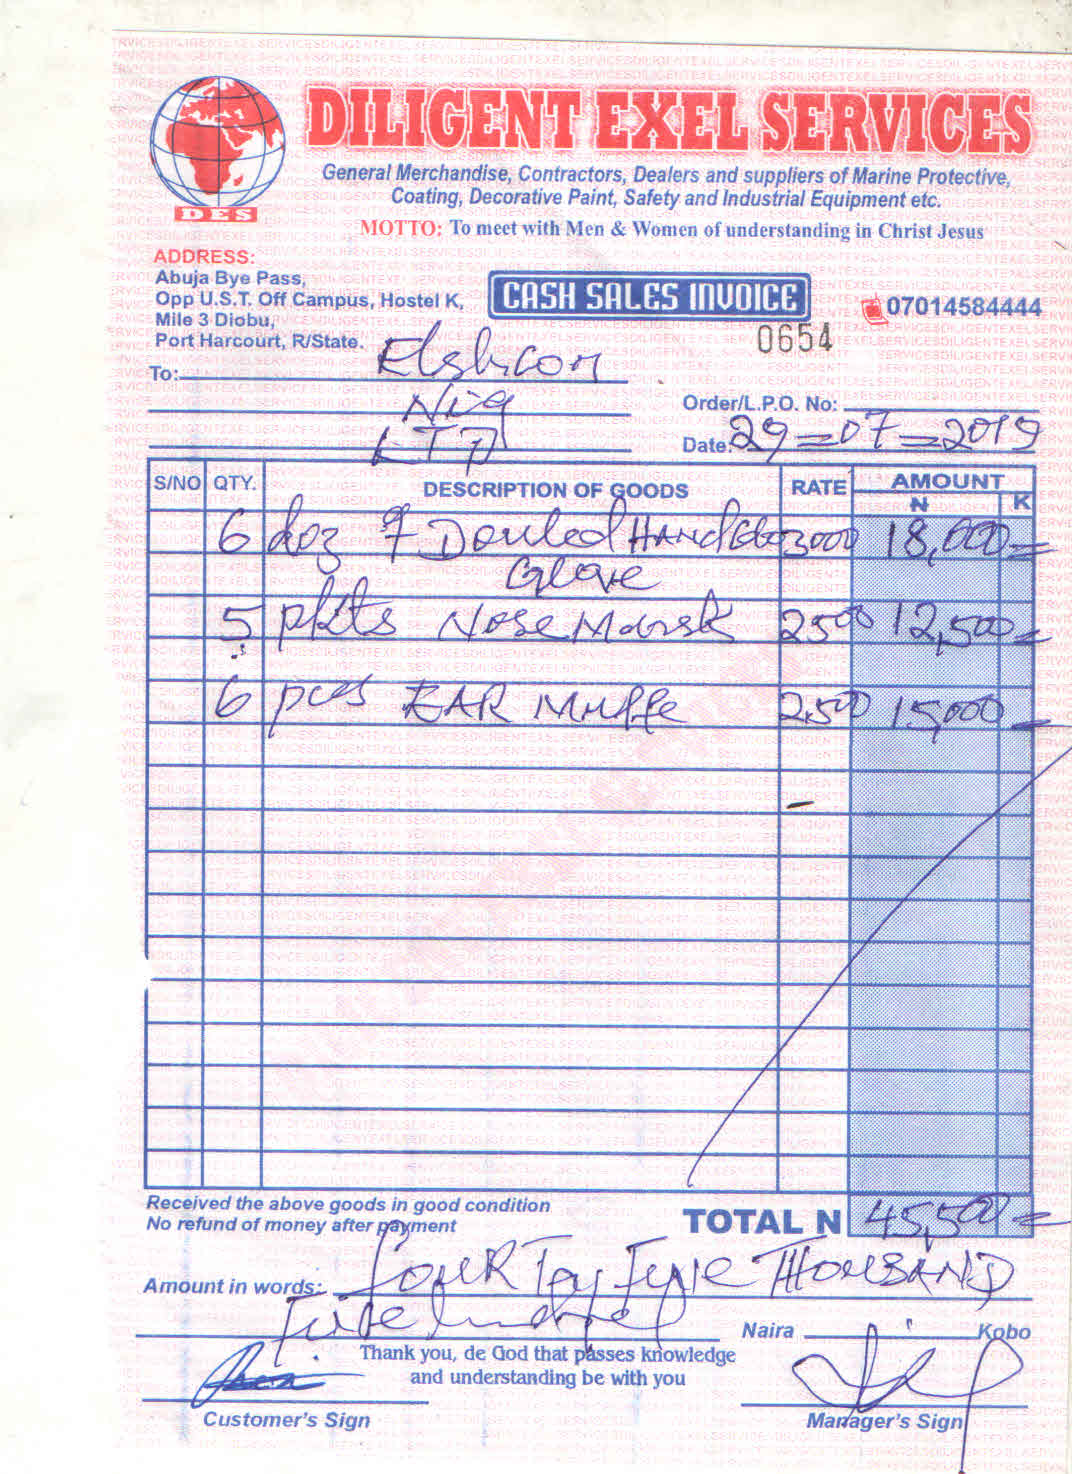 DILIGENT EXEL SERVICES
General Merchandise, Contractors, Dealers and suppliers of Marine Protective,
Coating, Decorative Paint, Safety and Industrial Equipment etc.
MOTTO: To meet with Men & Women of understanding in Christ Jesus
DES
ADDRESS:
Abuja Bye Pass,
Opp U.S.T. Off Campus, Hostel K,
Mile 3 Diobu,
Port Harcourt, R/State.
CASH SALES INVOICE
07014584444
0654
To: Elshcon
Nig
LTD
Order/L.P.O. No:
Date: 29=07=2019
S/NO QTY. DESCRIPTION OF GOODS RATE AMOUNT
N K
6 doz of Douled HAND 3000 18,000=
Glove
5 pkts Nose Mask 2500 12,500=
6 pcs EAR Muffe 2,500 15,000=
Received the above goods in good condition
No refund of money after payment
TOTAL N 45,500=
Amount in words: FOURTay Five THOUSAND
Five hundred
Naira Kobo
Thank you, de God that passes knowledge
and understanding be with you
Customer's Sign
Manager's Sign